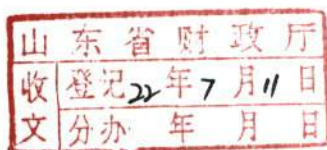 山东省财政厅
收文 登记22年7月11日
分办 年 月 日